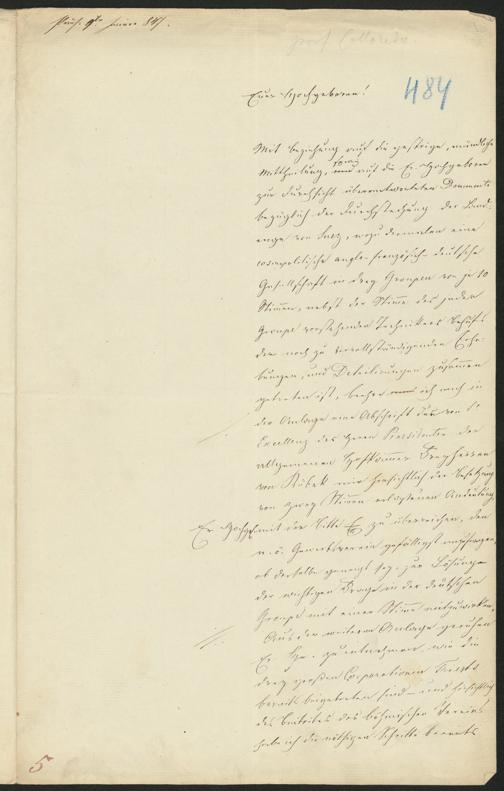 Präs. 9t Jänner 847.
Graf Colloredo.
484
Euer Hochgeboren!
Mit Beziehung auf die gestrige, mündliche
Mittheilung, und auf die Er. Hochgeboren
zur Durchsicht überantworteten Documente
bezüglich der Durchstechung der Land-
enge von Suez, wozu dermalen eine
cosmopolitische anglo-französisch-deutsche
Gesellschaft in drey Groupen von je 10
Stimmen, nebst der Stimme des jeder
Groupe vorstehenden Technikers behufs
der noch zu vervollständigenden Erhe-
bungen, und Detailirungen zusammen
getreten ist, beehre ich mich in
der Anlage eine Abschrift der von Sr
Excellenz des Herrn Praesidenten der
allgemeinen Hofkammer Freyherrn
von Kübek mir hinsichtlich der Besetzung
von zwey Stimmen erlassenen Andeutung
Er. Hochg. mit der Bitte zu überreichen, den
n. ö. Gewerbsverein gefälligst anzufragen,
ob derselbe geneigt sey, zur Lösung
der wichtigen Frage in der deutschen
Groupe mit einer Stimme mitzuwirken.
Aus der weitern Anlage geruhen
Er. Hg. zu entnehmen, wie die
drey großen Corporationen Triests
bereits beigetreten sind – und hinsichtlich
des Beitrittes des böhmischen Vereins
habe ich die nöthigen Schritte bereits
5